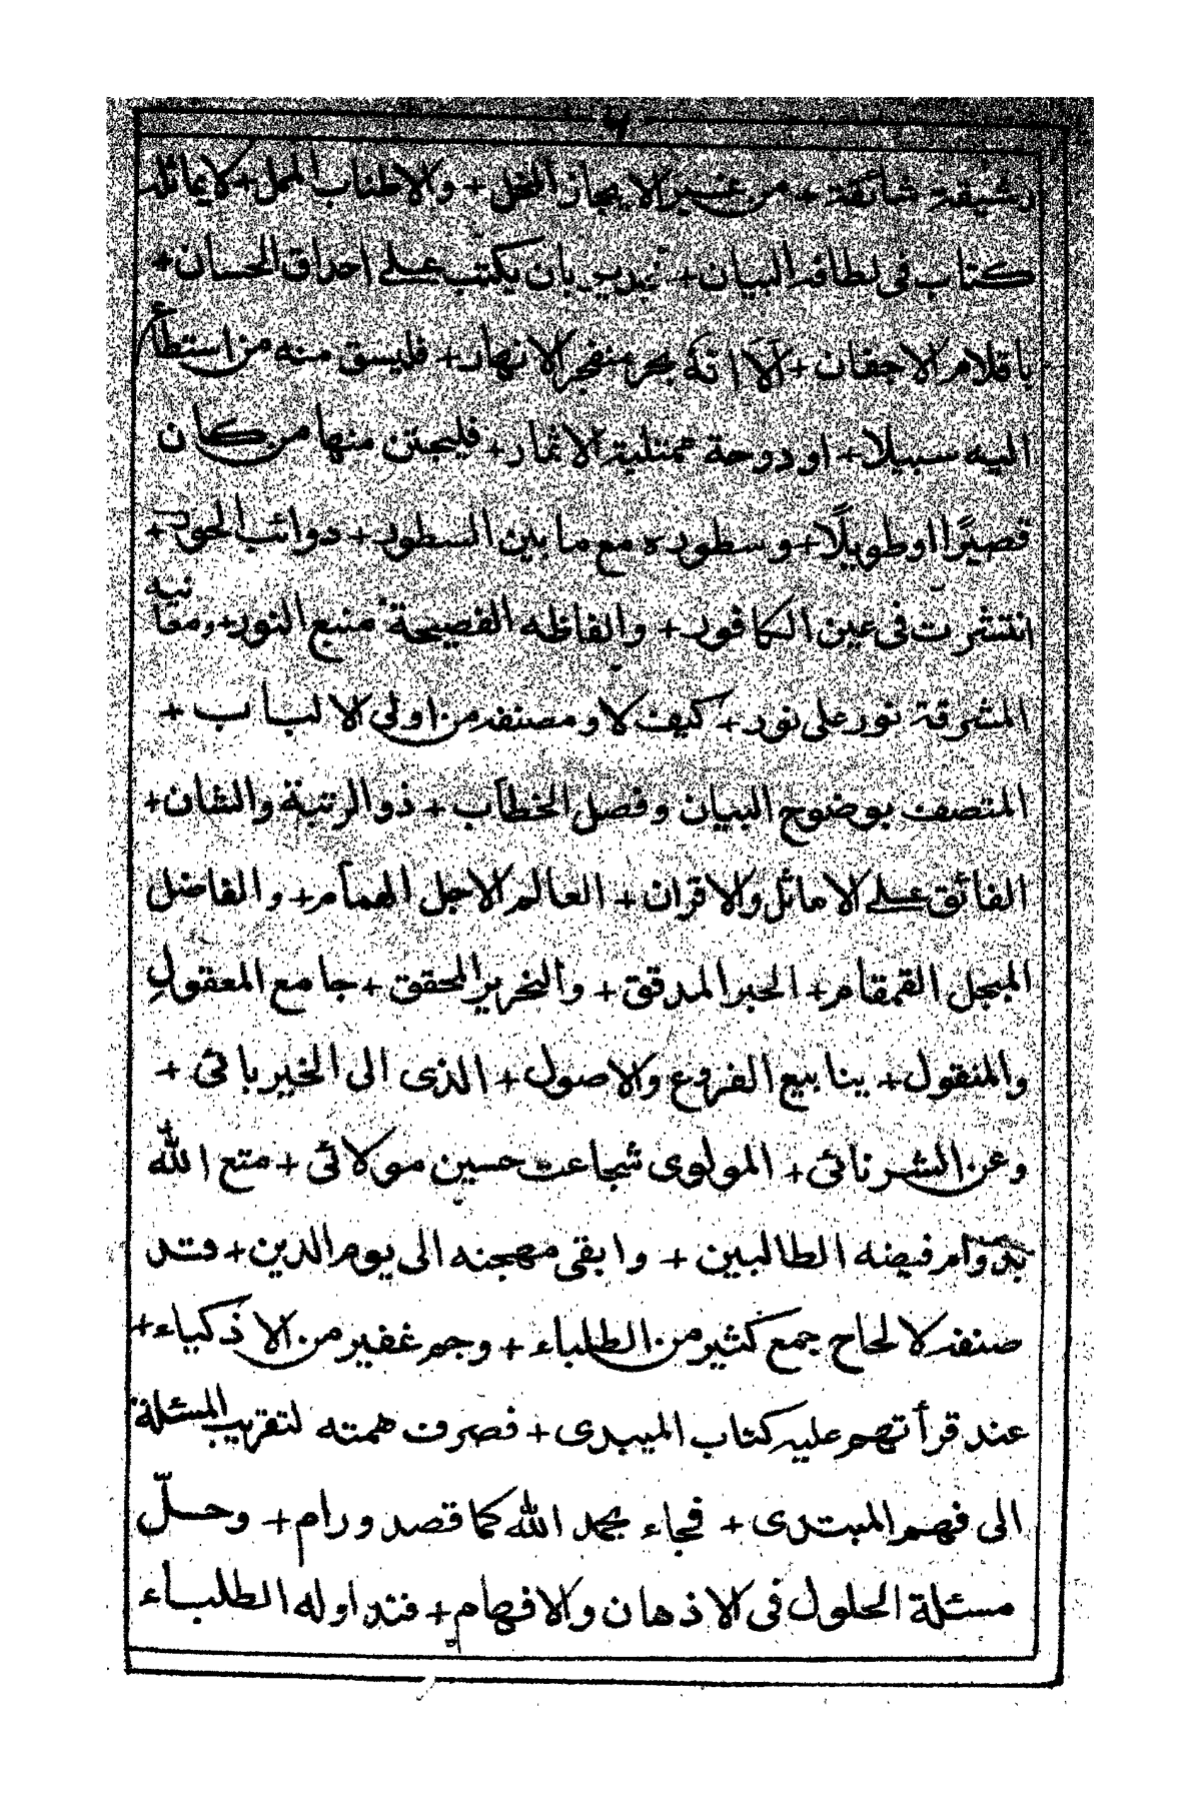 رشيقة شائقة + من غير الايجاز المخل + والاطناب الممل + لا يماثله
كتاب فى لطافة البيان + جدير بان يكتب على احداق الحسان +
باقلام الاجفان + اَلَا انّهٗ بحر منفجر الانهار + فليسق منه من استطاع
اليه سبيلا + او دوحة ممتلية الاثمار + فليجتن منها من كان
قصيرًا او طويلًا + وسطوره مع ما بين السطور + دوائب الحور +
انتشرت فى عين الكافور + والفاظه الفصيحة منبع النور + ومعانيه
المشرقة نور على نور + كيف لا و مصنفه من اولى الالباب +
المتصف بوضوح البيان وفصل الخطاب + ذو الرتبة والشان +
الفائق على الاماثل والاقران + العالم الاجل الهمام + والفاضل
المبجل القمقام + الحبر المدقق + والنحرير المحقق + جامع المعقول
والمنقول + ينابيع الفروع والاصول + الذى الى الخير باقى +
وعن الشر نائى + المولوى شجاعت حسين مولائى + متع الله
بدوام فيضه الطالبين + وابقى مهجته الى يوم الدين + قد
صنفه لالحاح جمع كثير من الطلباء + وجم غفير من الاذكياء +
عند قرأتهم عليه كتاب الميبدى + فصرف همته لتقريب المسئلة
الى فهم المبتدى + فجاء بحمد الله كما قصد ورام + وحلّ
مسئلة الحلول فى الاذهان والافهام + فتداوله الطلباء